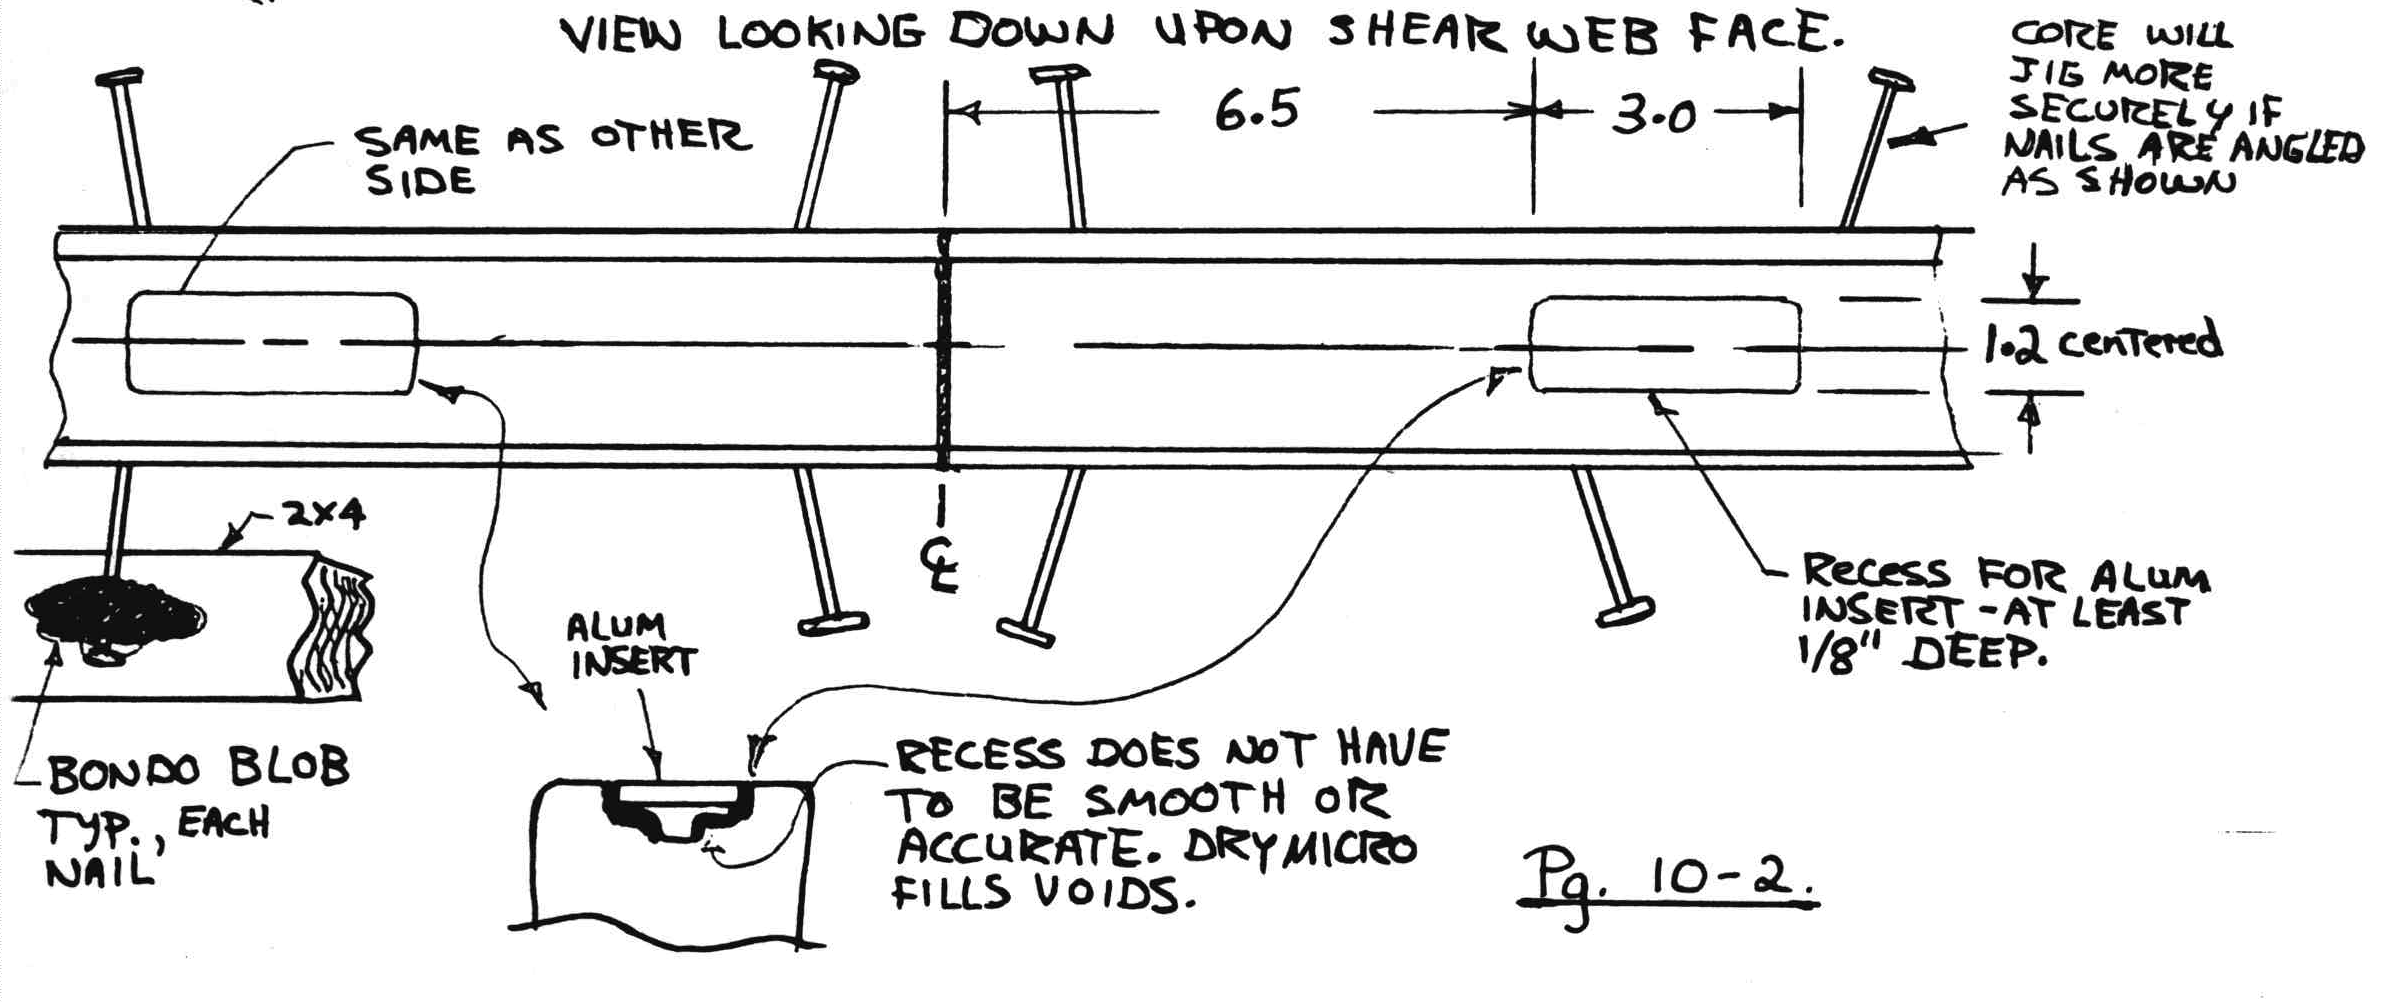 VIEW LOOKING DOWN UPON SHEAR WEB FACE.
CORE WILL
JIG MORE
SECURELY IF
NAILS ARE ANGLED
AS SHOWN
6.5
3.0
SAME AS OTHER
SIDE
1.2 centered
2x4
℄
ALUM
INSERT
RECESS FOR ALUM
INSERT - AT LEAST
1/8" DEEP.
BONDO BLOB
TYP., EACH
NAIL
RECESS DOES NOT HAVE
TO BE SMOOTH OR
ACCURATE. DRY MICRO
FILLS VOIDS.
Pg. 10-2.